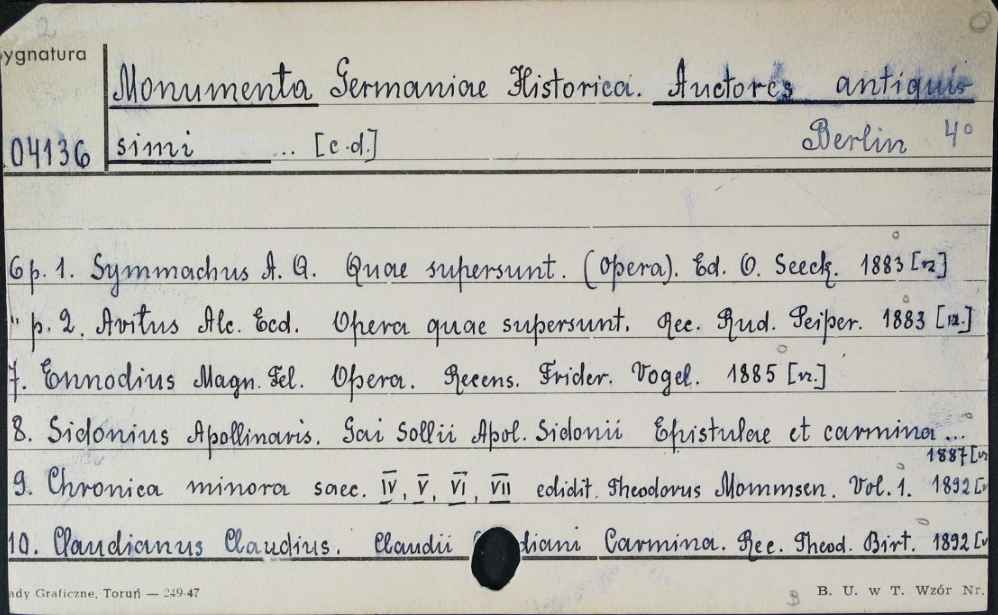 ygnatura
Monumenta Germaniae Historica. Auctores antiquis
04136 simi ... [c.d.] Berlin 4°
6 p. 1. Symmachus A. Q. Quae supersunt. (Opera). Ed. O. Seeck. 1883
" p. 2. Avitus Alc. Ecd. Opera quae supersunt. Rec. Rud. Peiper. 1883
7. Ennodius Magn. Fel. Opera. Recens. Frider. Vogel. 1885
8. Sidonius Apollinaris. Gai Sollii Apol. Sidonii Epistulae et carmina ...
1887
9. Chronica minora saec. IV, V, VI, VII edidit. Theodorus Mommsen. Vol. 1. 1892
10. Claudianus Claudius. Claudii diani Carmina. Rec. Theod. Birt. 1892
ady Graficzne, Toruń — 249-47 B. U. w T. Wzór Nr.